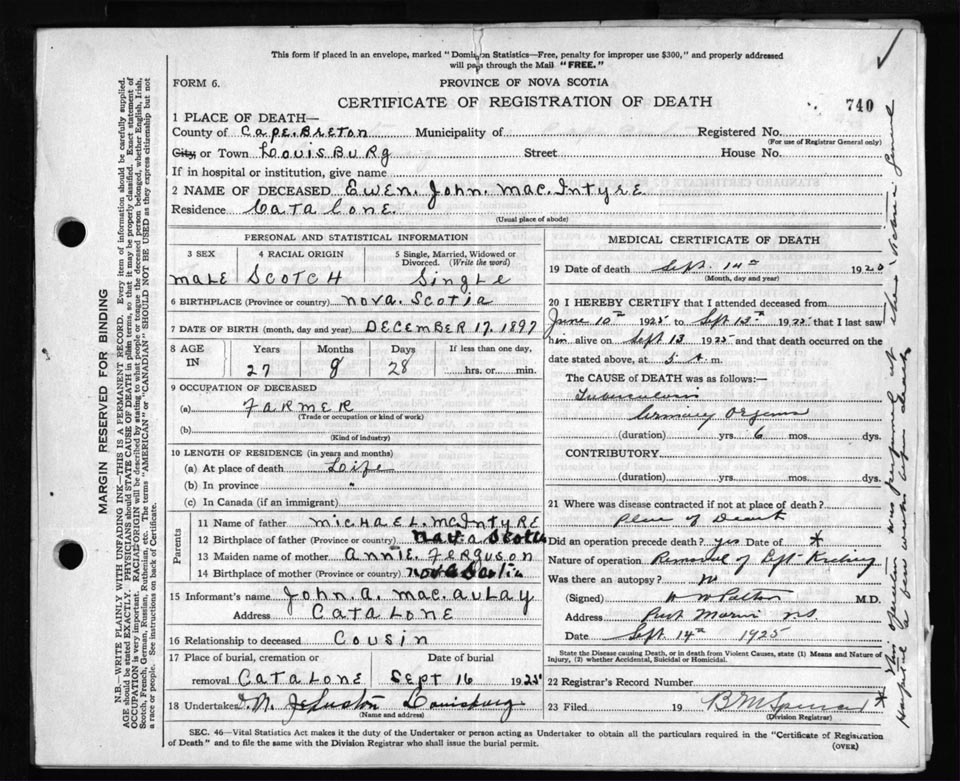 This form if placed in an envelope, marked "Dominion Statistics—Free, penalty for improper use $300," and properly addressed
will pass through the Mail "FREE."
FORM 6.
PROVINCE OF NOVA SCOTIA
CERTIFICATE OF REGISTRATION OF DEATH
740
1 PLACE OF DEATH—
County of Cape. Breton Municipality of Registered No.
(For use of Registrar General only)
City or Town LouisBuRg Street House No.
If in hospital or institution, give name
2 NAME OF DECEASED Ewen. John. Mac. IntyRE
Residence CATAloNE.
(Usual place of abode)
PERSONAL AND STATISTICAL INFORMATION
3 SEX 4 RACIAL ORIGIN 5 Single, Married, Widowed or
Divorced. (Write the word)
MALE SCOTCH SingLe
6 BIRTHPLACE (Province or country) Nova. Scotia
7 DATE OF BIRTH (month, day and year) DECEMBER 17. 1897
8 AGE IN Years Months Days If less than one day,
27 8 28 hrs. or min.
9 OCCUPATION OF DECEASED
(a) FARMER
(Trade or occupation or kind of work)
(b)
(Kind of industry)
10 LENGTH OF RESIDENCE (in years and months)
(a) At place of death Life
(b) In province "
(c) In Canada (if an immigrant)
Parents
11 Name of father MICHAEL. McINTYRE
12 Birthplace of father (Province or country) Nova Scotia
13 Maiden name of mother ANNIE FERGUSON
14 Birthplace of mother (Province or country) Nova Scotia
15 Informant's name JOHN. A. MAC. AULAY
Address CATALONE
16 Relationship to deceased COUSIN
17 Place of burial, cremation or Date of burial
removal CATALONE SEPT 16 1925
18 Undertaker Louisburg
(Name and address)
MEDICAL CERTIFICATE OF DEATH
19 Date of death Sept. 14th 1925
(Month, day and year)
20 I HEREBY CERTIFY that I attended deceased from
June 10th 1925 to Sept 13th 1925 that I last saw
him alive on Sept 13 1925 and that death occurred on the
date stated above, at 5 A. m.
The CAUSE OF DEATH was as follows:—
Tuberculosis
Urinary Organs
(duration) yrs. 6 mos. dys.
CONTRIBUTORY
(duration) yrs. mos. dys.
21 Where was disease contracted if not at place of death?
Place of Death
Did an operation precede death? yes Date of *
Nature of operation Removal of Left Kidney
Was there an autopsy? No
(Signed) M.D.
Address Port Morien N.S.
Date Sept. 14th 1925
State the Disease causing Death, or in death from Violent Causes, state (1) Means and Nature of
Injury, (2) whether Accidental, Suicidal or Homicidal.
22 Registrar's Record Number
23 Filed 19 B M Spencer
(Division Registrar)
SEC. 46—Vital Statistics Act makes it the duty of the Undertaker or person acting as Undertaker to obtain all the particulars required in the "Certificate of Registration
of Death" and to file the same with the Division Registrar who shall issue the burial permit.
(OVER)
MARGIN RESERVED FOR BINDING
N.B.—WRITE PLAINLY WITH UNFADING INK—THIS IS A PERMANENT RECORD. Every item of information should be carefully supplied.
AGE should be stated EXACTLY. PHYSICIANS should STATE CAUSE OF DEATH in plain terms, so that it may be properly classified. Exact statement of
OCCUPATION is very important. RACIAL ORIGIN will be described by stating to what people or tongue the deceased person belonged, whether English, Irish,
Scotch, French, German, Russian, Ruthenian, etc. The terms "AMERICAN" or "CANADIAN" SHOULD NOT BE USED as they express citizenship but not
a race or people. See instructions on back of Certificate.
* This operation was performed at
Hospital a few weeks before death